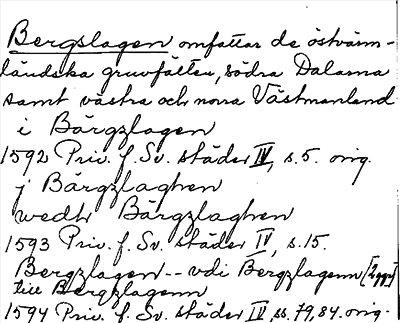 Bergslagen omfattar de östvärm-
ländska gruvfälten, södra Dalarna
samt västra och norra Västmanland
i Bärgzlagen
1592 Priv. f. Sv. städer IV, s. 5. orig.
j Bärgzlaghen
wedh Bärgzlaghen
1593 Priv. f. Sv. städer IV, s. 15.
Bergzlagen -- vdi Bergzlagenn [2 ggr]
till Bergzlagenn
1594 Priv. f. Sv. städer IV, ss. 79, 84. orig.